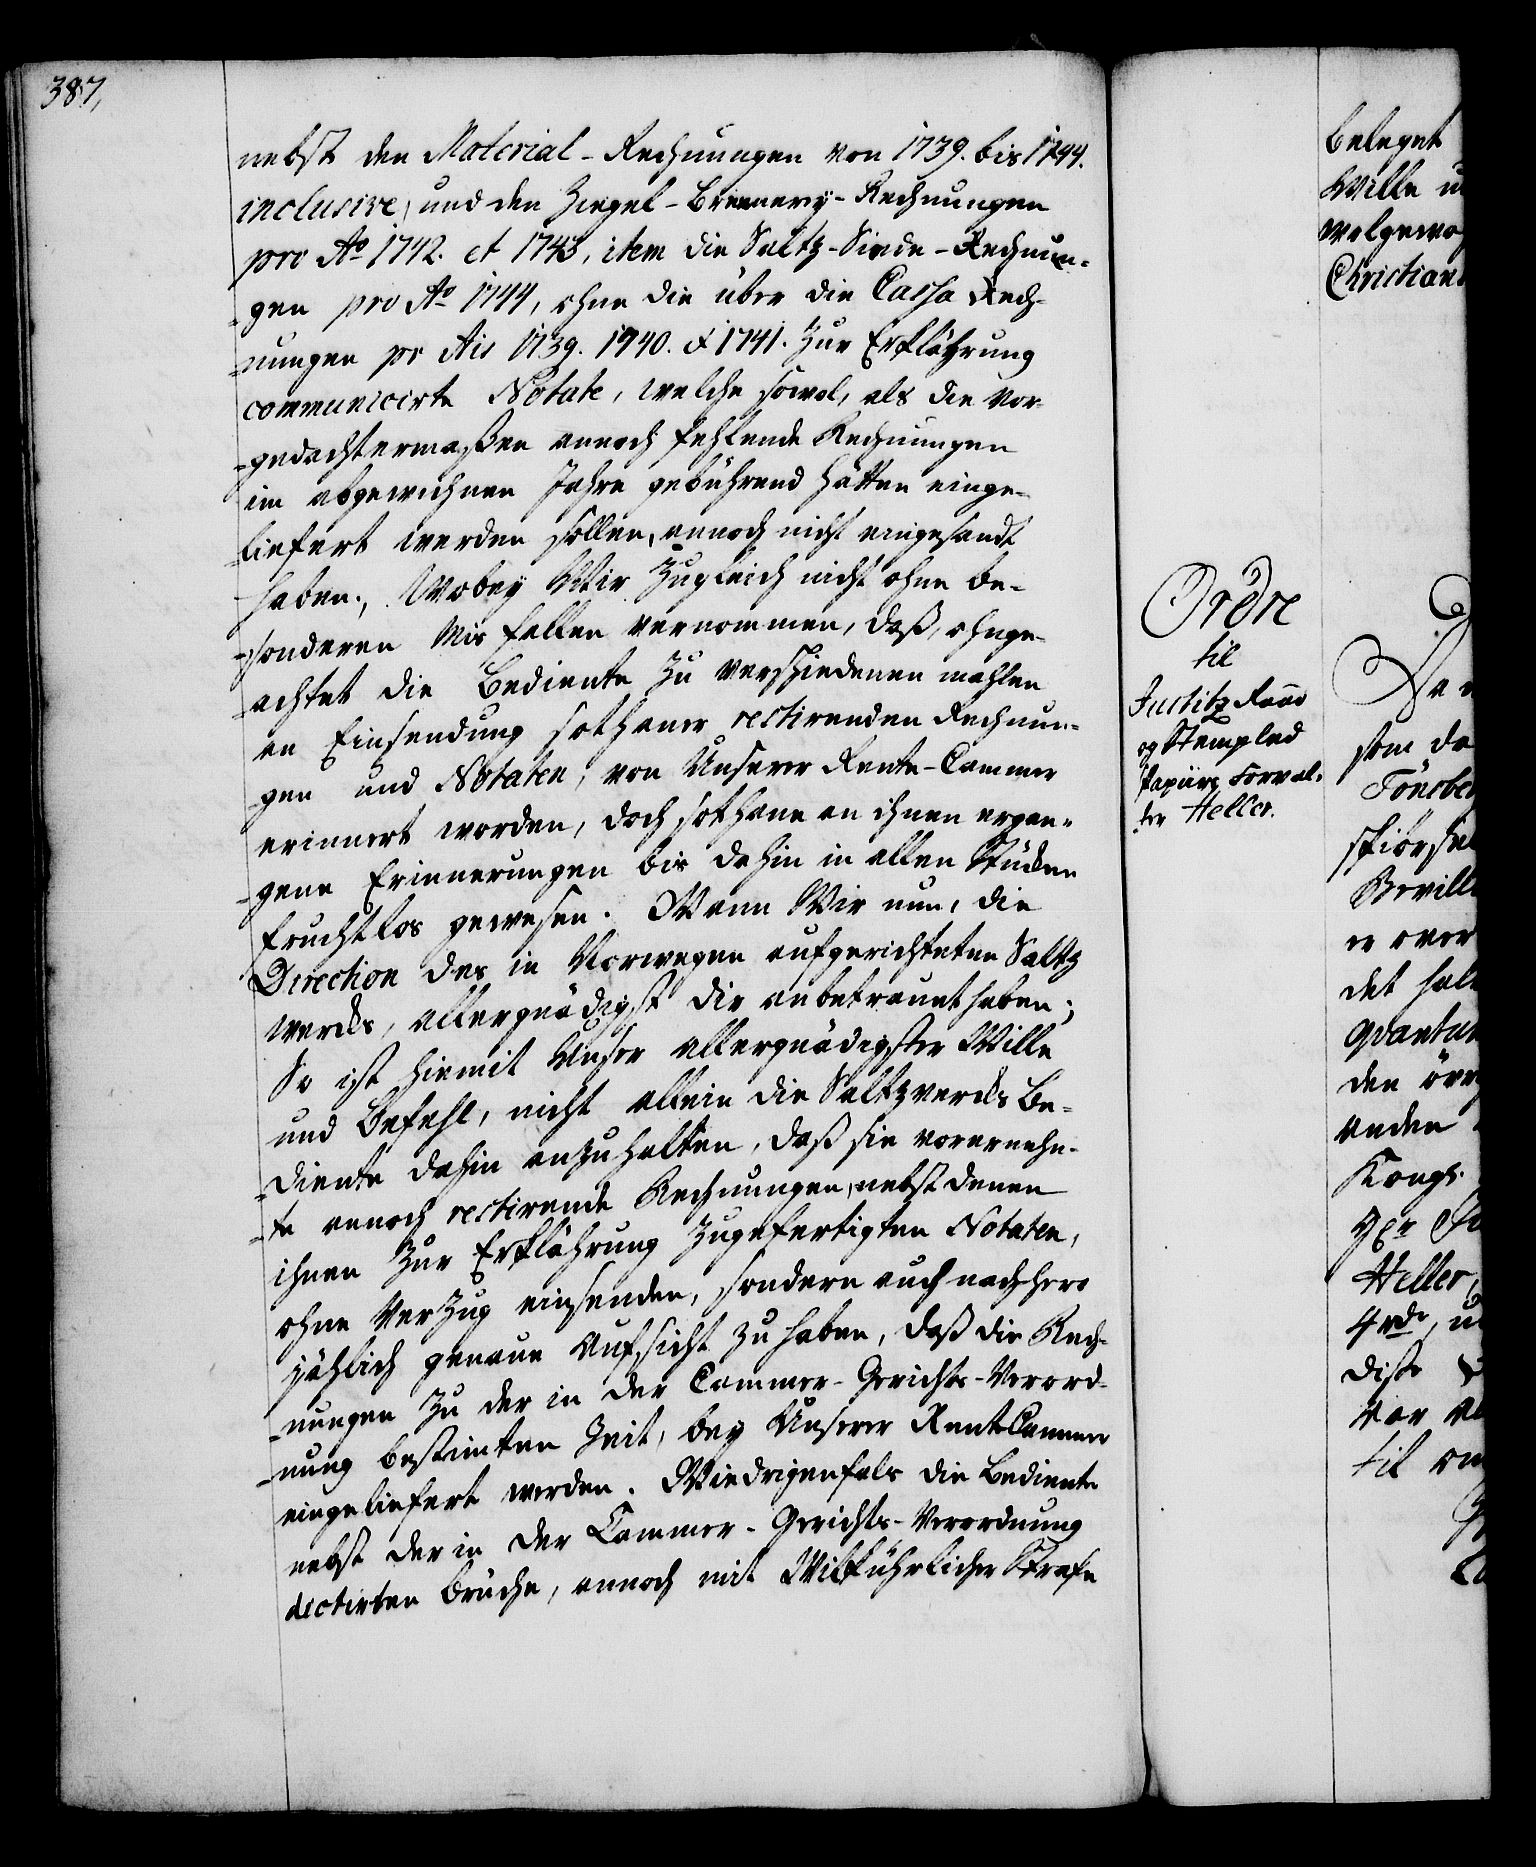 387,
nebst den Material-Rechnungen von 1739. bis 1744.
inclusive, und den Ziegel-Brennerij-Rechnungen
pro Ao 1742. et 1743, item die Saltz-Siede-Rechnun-
-gen pro Ao 1744, ohne die über die Cassa Rech-
-nungen pr Ais 1739. 1740. & 1741. zur Erklährung
communicirte Notate, welche sowol, als die vor-
-gedachtermaßen annoch fehlende Rechnungen
im abgewichnen Jahre gebührend hätten einge-
-liefert werden sollen, annoch nicht eingesandt
haben; Wobey Wir zugleich nicht ohne be-
-sonderen Misfallen vernommen, daß, ohnge-
-achtet die Bediente zu verschiedenen mahlen
an Einsendung sothaner restirenden Rechnun-
-gen und Notaten, von Unserer Rente-Cammer
erinnert worden, doch sothane an ihnen ergan-
-gene Erinnerungen bis dahin in allen Stücken
fruchtlos gewesen. Wann Wir nun, die
Direction des in Norwegen aufgerichteten Saltz
wercks, allergnädigst dir anbetrauet haben;
So ist hiemit Unser allergnädigster Wille
und Befehl, nicht allein die Saltzwercks Be-
-diente dahin anzuhalten, daß sie vorernehn-
-te annoch restirende Rechnungen, nebst denen
ihnen zur Erklährung zugefertigten Notaten,
ohne Verzug einsenden, sondern auch nachhero
jährlich genaue Aufsicht zu haben, daß die Rech-
-nungen zu der in der Cammer-Gerichts-Verord-
-nung bestimten Zeit, bey Unserer RenteCammer
eingeliefert werden. Wiedrigenfals die Bediente
nebst der in der Cammer-Gerichts-Verordnung
dictirten Brüche, annoch mit Wilkührlicher Strafe
Ordre
til
Justitz Raad
og Stempled
Papiirs Forval-
-ter Heller.
beleget
Wille u
wolgewo
Christian
som da
er over
det hal
qvantum
den övr
anden
Kongl.
Heller,
4rde, u
disse
var
til om